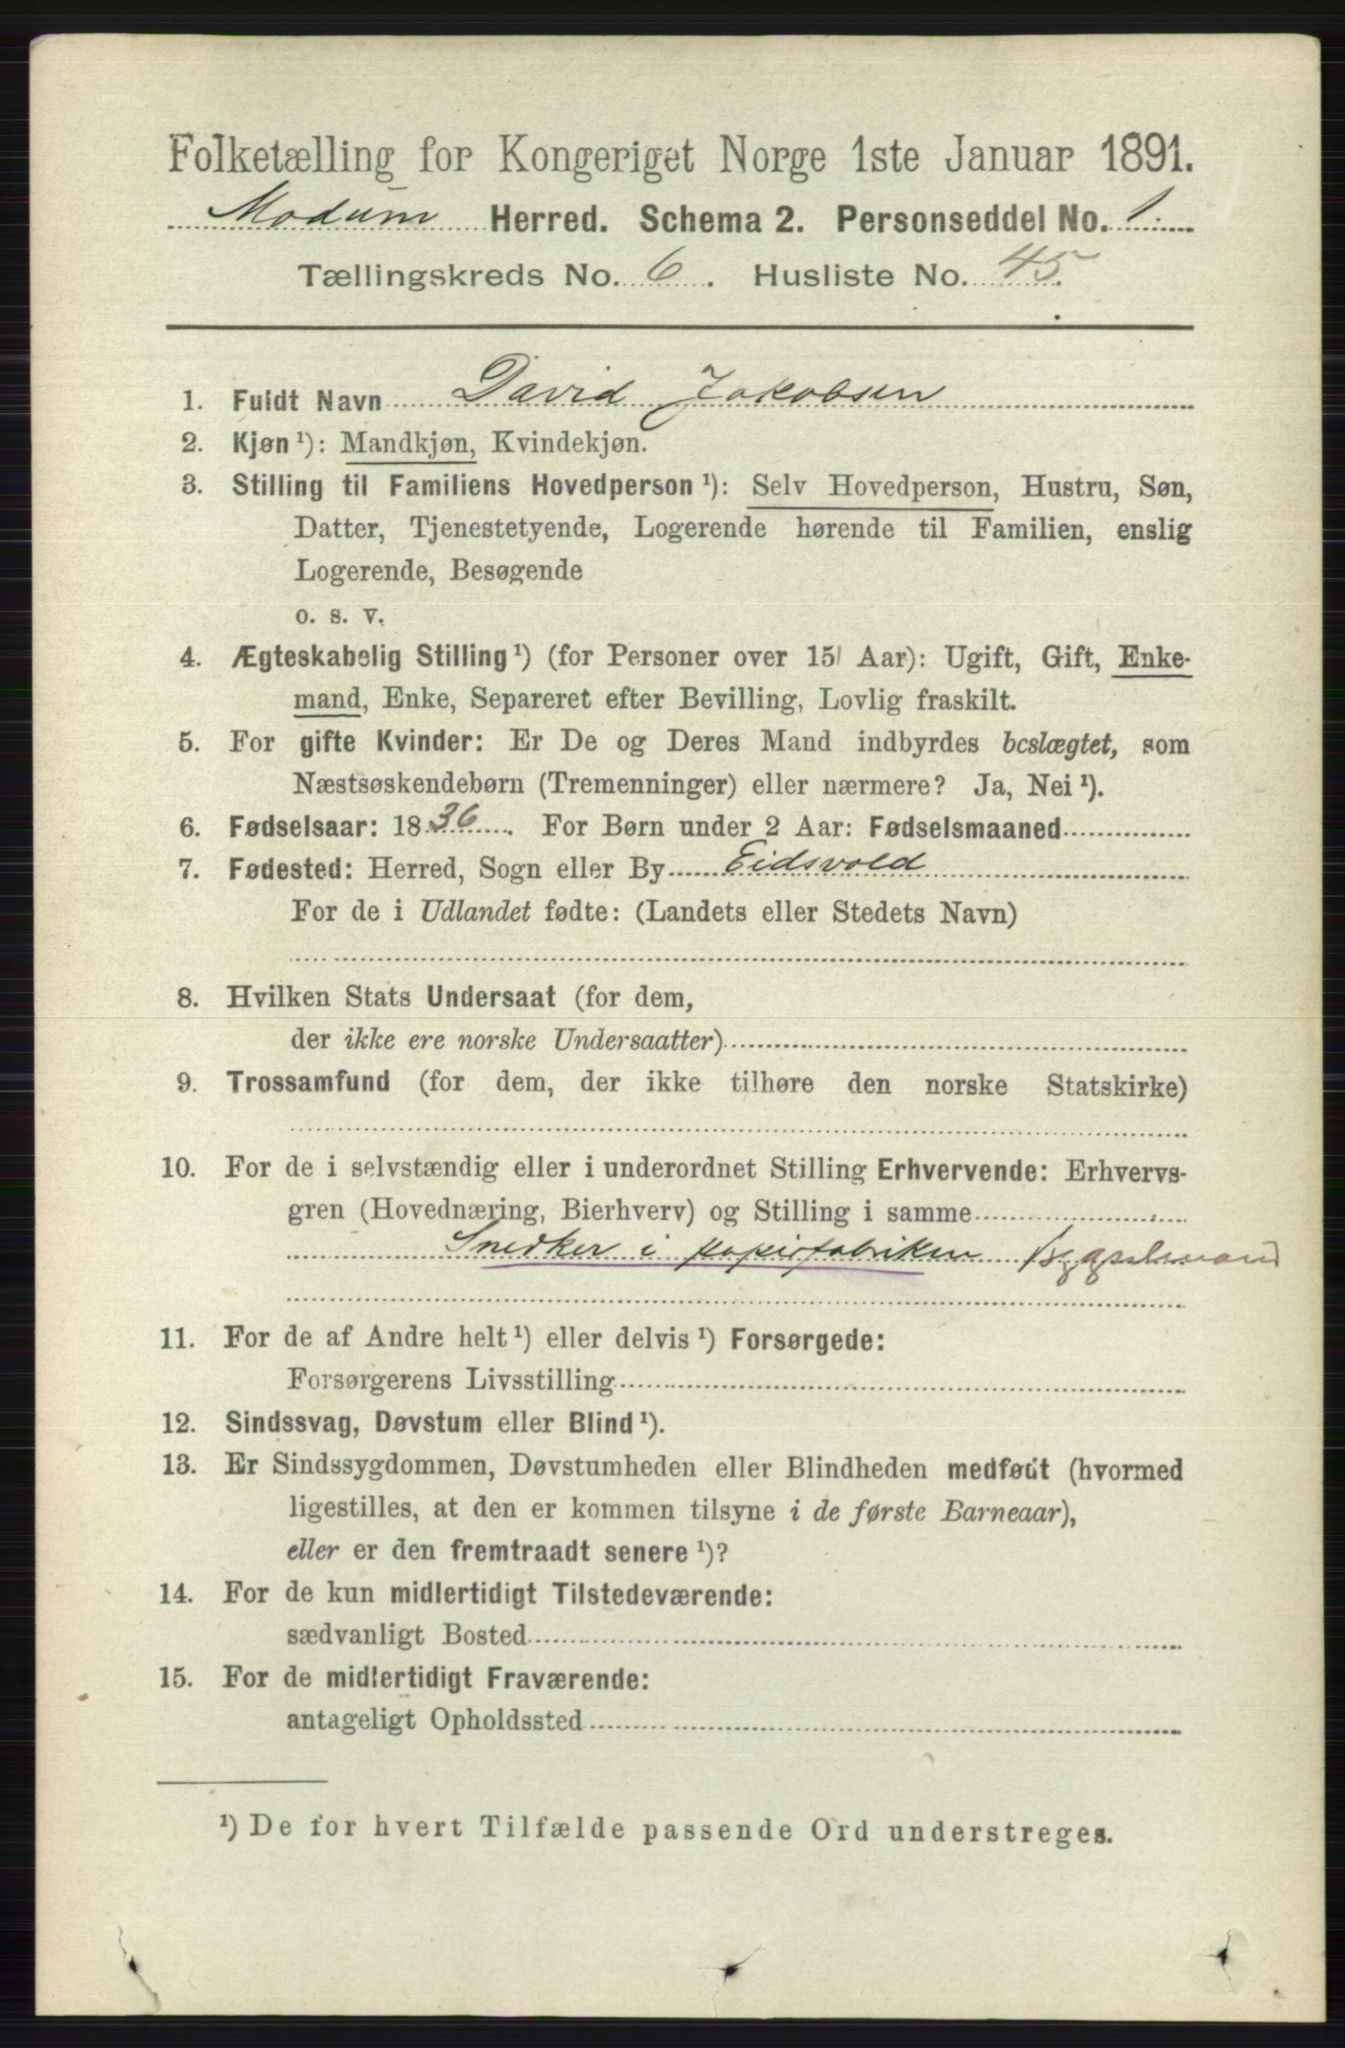 Folketælling for Kongeriget Norge 1ste Januar 1891.
Modum Herred. Schema 2. Personseddel No. 1.
Tællingskreds No. 6. Husliste No. 45.
1. Fuldt Navn David Jakobsen
2. Kjøn ¹): Mandkjøn, Kvindekjøn.
3. Stilling til Familiens Hovedperson ¹): Selv Hovedperson, Hustru, Søn,
Datter, Tjenestetyende, Logerende hørende til Familien, enslig
Logerende, Besøgende
o. s. v.
4. Ægteskabelig Stilling ¹) (for Personer over 15 Aar): Ugift, Gift, Enke-
mand, Enke, Separeret efter Bevilling, Lovlig fraskilt.
5. For gifte Kvinder: Er De og Deres Mand indbyrdes beslægtet, som
Næstsøskendebørn (Tremenninger) eller nærmere? Ja, Nei ¹).
6. Fødselsaar: 1836. For Børn under 2 Aar: Fødselsmaaned
7. Fødested: Herred, Sogn eller By Eidsvold
For de i Udlandet fødte: (Landets eller Stedets Navn)
8. Hvilken Stats Undersaat (for dem,
der ikke ere norske Undersaatter)
9. Trossamfund (for dem, der ikke tilhøre den norske Statskirke)
10. For de i selvstændig eller i underordnet Stilling Erhvervende: Erhvervs-
gren (Hovednæring, Bierhverv) og Stilling i samme
Snedker i papirfabriken
11. For de af Andre helt ¹) eller delvis ¹) Forsørgede:
Forsørgerens Livsstilling
12. Sindssvag, Døvstum eller Blind ¹).
13. Er Sindssygdommen, Døvstumheden eller Blindheden medfødt (hvormed
ligestilles, at den er kommen tilsyne i de første Barneaar),
eller er den fremtraadt senere ¹)?
14. For de kun midlertidigt Tilstedeværende:
sædvanligt Bosted
15. For de midlertidigt Fraværende:
antageligt Opholdssted
¹) De for hvert Tilfælde passende Ord understreges.